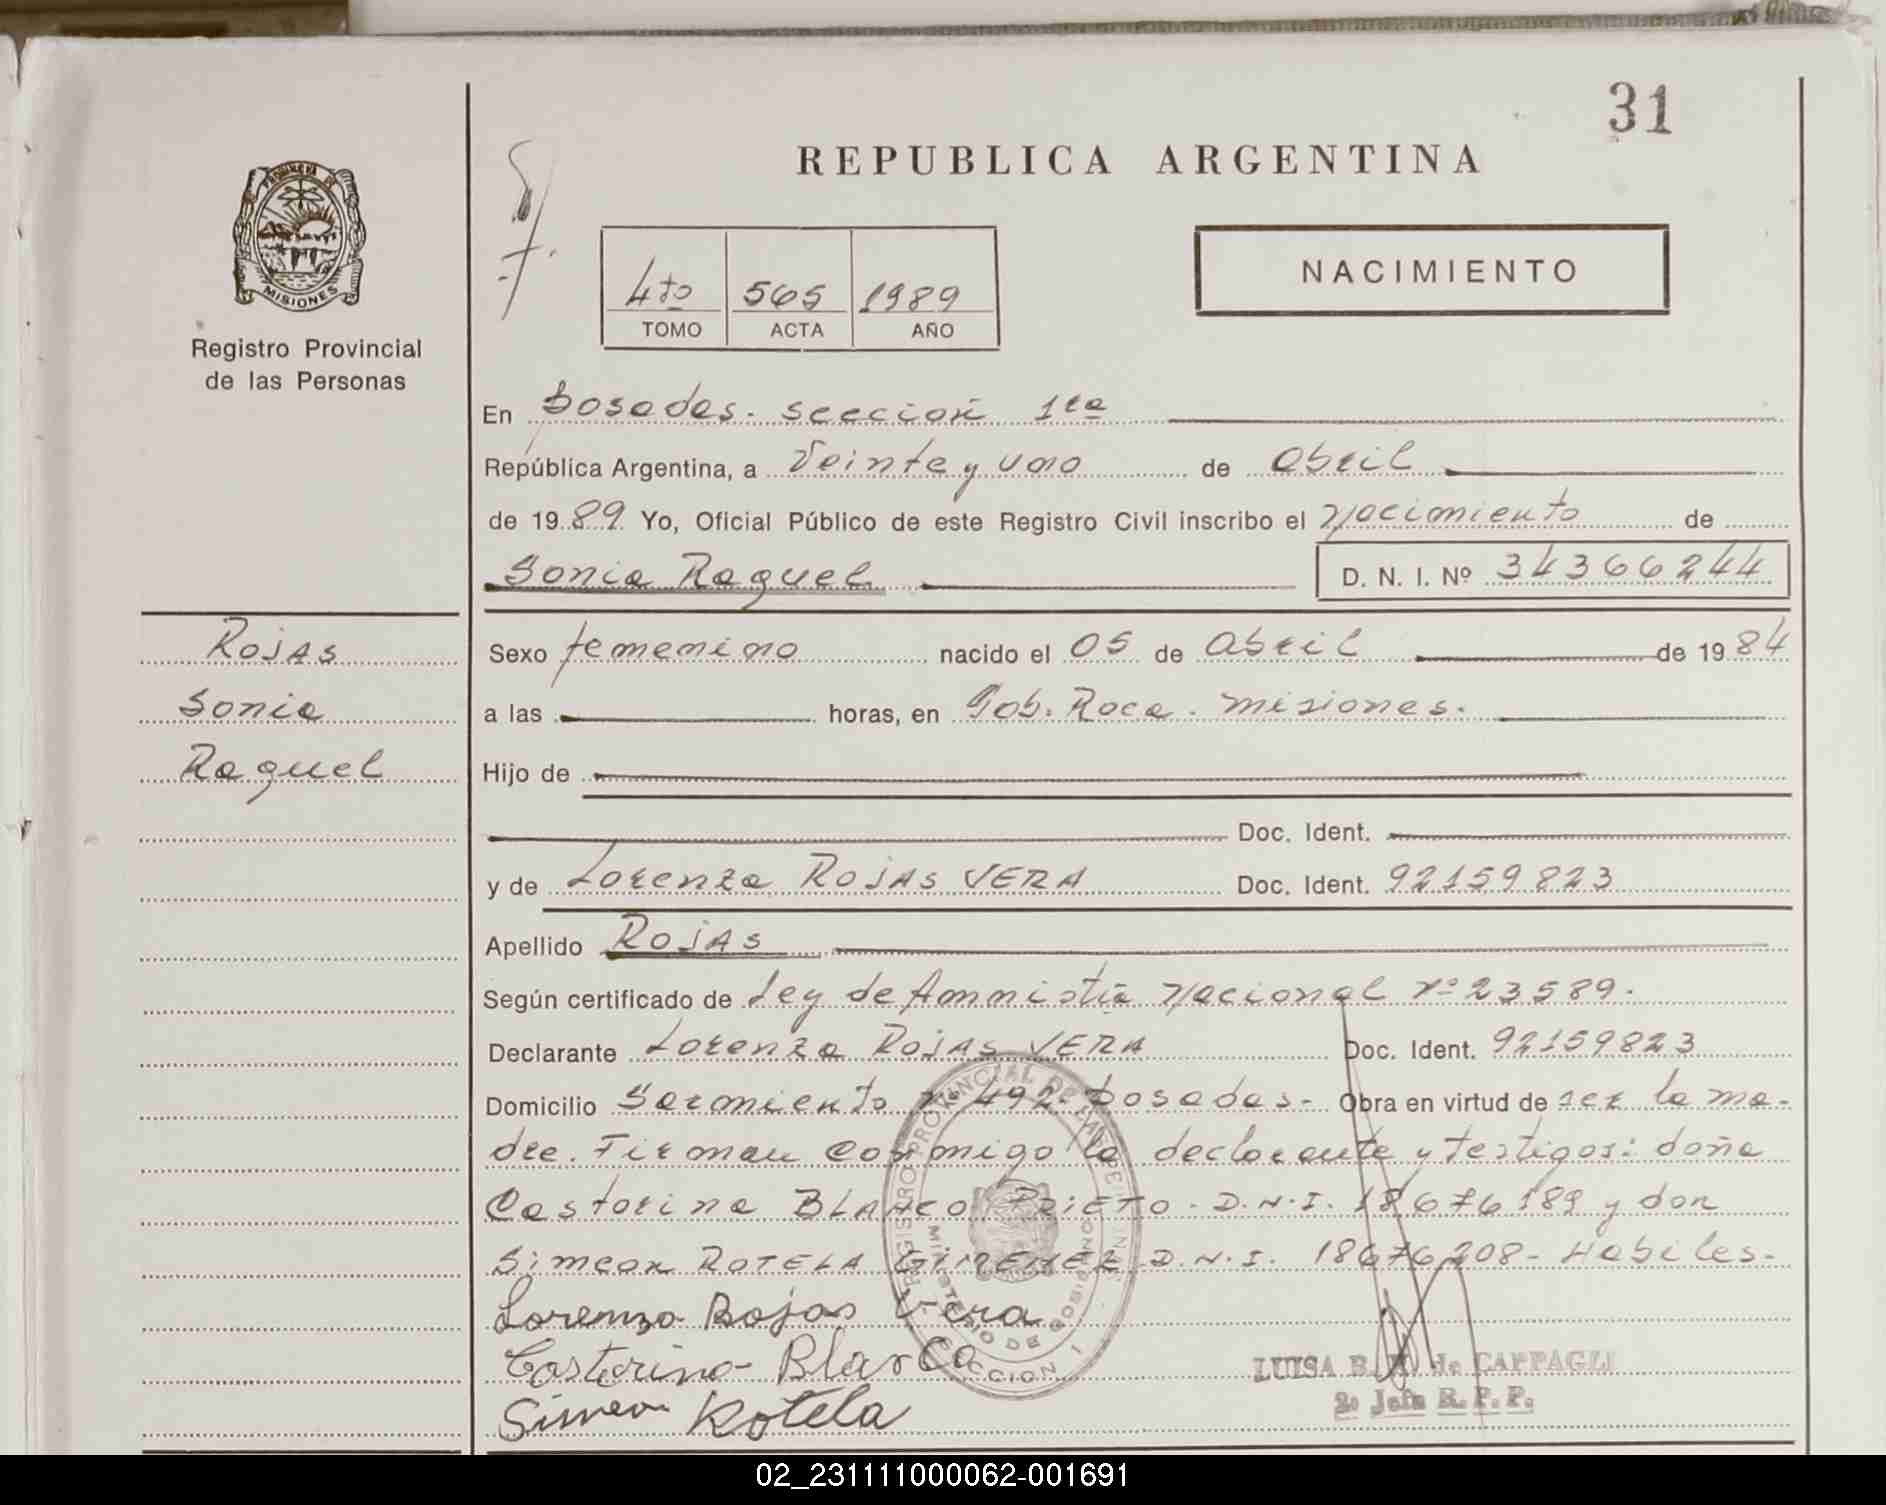 31
REPUBLICA ARGENTINA
PROVINCIA DE
MISIONES
Registro Provincial
de las Personas
4to 565 1989
TOMO ACTA AÑO
NACIMIENTO
En Posadas. sección 1ra
República Argentina, a Veinte y uno de abril
de 1989 Yo, Oficial Público de este Registro Civil inscribo el Nacimiento de
Sonia Raquel D. N. I. Nº 34366244
Rojas
Sonia
Raquel
Sexo femenino nacido el 05 de abril de 1984
a las horas, en Gob. Roca. Misiones.
Hijo de
Doc. Ident.
y de Lorenza Rojas VERA Doc. Ident. 92159823
Apellido Rojas
Según certificado de Ley de Amnistía Nacional nº 23589.
Declarante Lorenza Rojas VERA Doc. Ident. 92159823
Domicilio Sarmiento nº 492. Posadas- Obra en virtud de ser la ma-
dre. Firman conmigo la declarante y testigos: doña
Castorina BLANCO PRIETO. D.N.I. 18676189 y don
Simeon ROTELA GIMENEZ D.N.I. 18676208- Habiles-
Lorenza Rojas Vera
Castorina Blanco
Simeon Rotela
REGISTRO PROVINCIAL DE LAS PERSONAS
MINISTERIO DE GOBIERNO
SECCION 1
LUISA B. de CAPPAGLI
2º Jefe R. P. P.
02_231111000062-001691